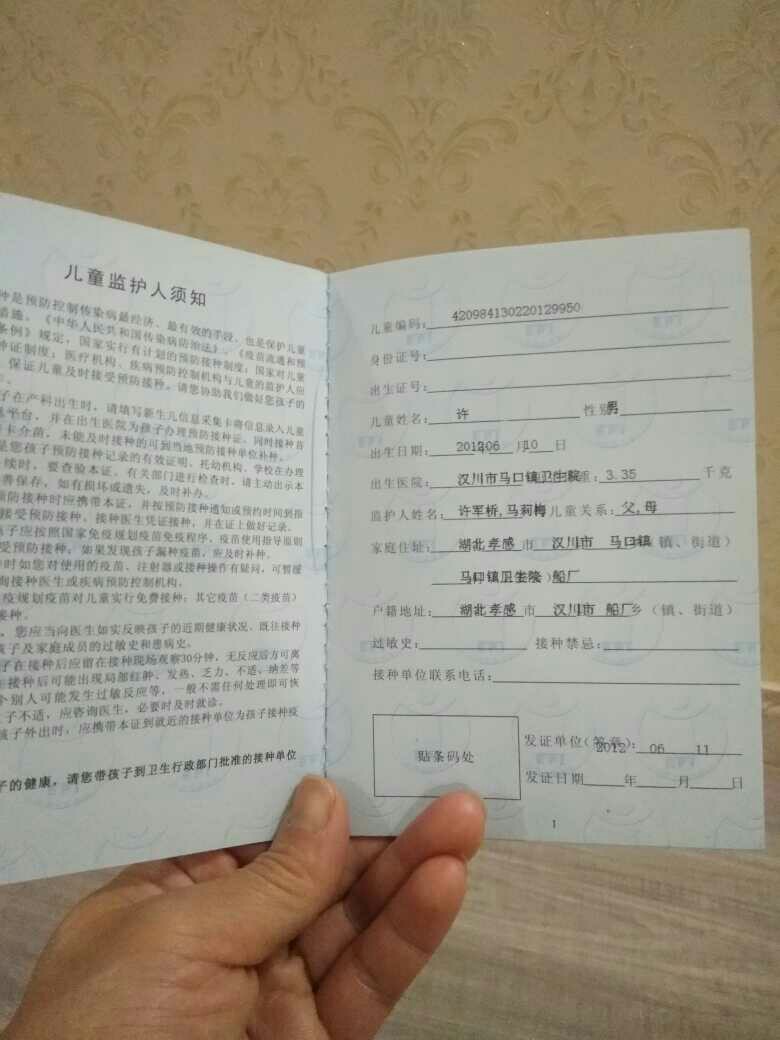 儿童监护人须知
种是预防控制传染病最经济、最有效的手段，也是保护儿童
措施。《中华人民共和国传染病防治法》、《疫苗流通和预
条例》规定，国家实行有计划的预防接种制度；国家对儿童
种证制度；医疗机构、疾病预防控制机构与儿童的监护人应
，保证儿童及时接受预防接种。请您协助我们做好您孩子的
子在产科出生时，请填写新生儿信息采集卡将信息录入儿童
息平台，并在出生医院为孩子办理预防接种证、同时接种首
卡介苗，未能及时接种的可到当地预防接种单位补种。
是您孩子预防接种记录的有效证明，托幼机构、学校在办理
续时，要查验本证。有关部门进行检查时，请主动出示本
善保存，如有损坏或遗失，及时补办。
预防接种时应携带本证，并按预防接种通知或预约时间到指
接受预防接种，接种医生凭证接种，并在证上做好记录。
孩子应按照国家免疫规划疫苗免疫程序、疫苗使用指导原则
受预防接种。如果发现孩子漏种疫苗，应及时补种。
种时如您对使用的疫苗、注射器或接种操作有疑问，可暂缓
询接种医生或疾病预防控制机构。
疫规划疫苗对儿童实行免费接种；其它疫苗（二类疫苗）
接种。
，您应当向医生如实反映孩子的近期健康状况、既往接种
孩子及家庭成员的过敏史和患病史。
子在接种后应留在接种现场观察30分钟，无反应后方可离
接种后可能出现局部红肿、发热、乏力、不适、纳差等
个别人可能发生过敏反应等，一般不需任何处理即可恢
子不适，应咨询医生，必要时及时就诊。
孩子外出时，应携带本证到就近的接种单位为孩子接种疫
子的健康，请您带孩子到卫生行政部门批准的接种单位
儿童编码：420984130220129950
身份证号：
出生证号：
儿童姓名：许 性别男
出生日期：201206 月10 日
出生医院：汉川市马口镇卫生院 3.35 千克
监护人姓名：许军桥,马莉梅 儿童关系：父,母
家庭住址：湖北孝感 市 汉川市 马口镇 镇、街道）
马口镇卫生院）船厂
户籍地址：湖北孝感 市 汉川市 船厂乡（镇、街道）
过敏史： 接种禁忌：
接种单位联系电话：
贴条码处
发证单位（签章）：2012 06 11
发证日期 年 月 日
1